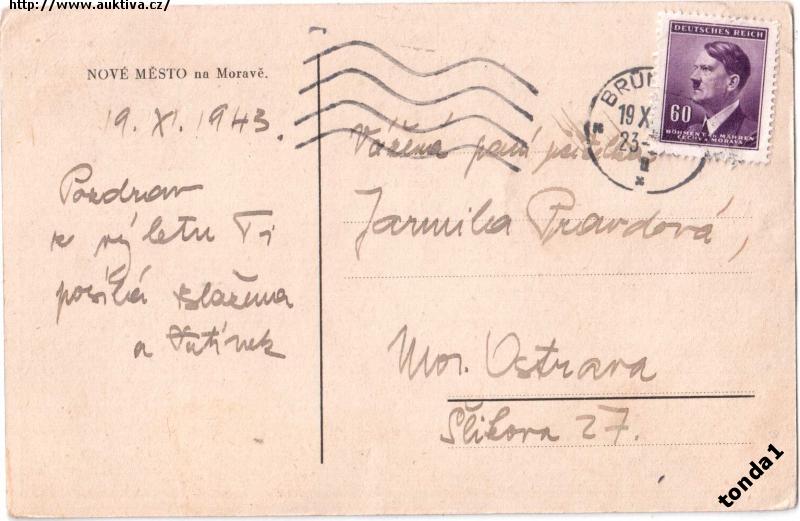 http://www.auktiva.cz/
NOVÉ MĚSTO na Moravě.
19. XI. 1943.
Pozdrav
k výletu Ti
posílá Blažena
a
DEUTSCHES REICH
60
BÖHMEN u. MÄHREN
ČECHY a MORAVA
BRÜ
19 X
23-
Vážená paní
Jarmila Pravdová,
Mor. Ostrava
Šlikova 27.
tonda1